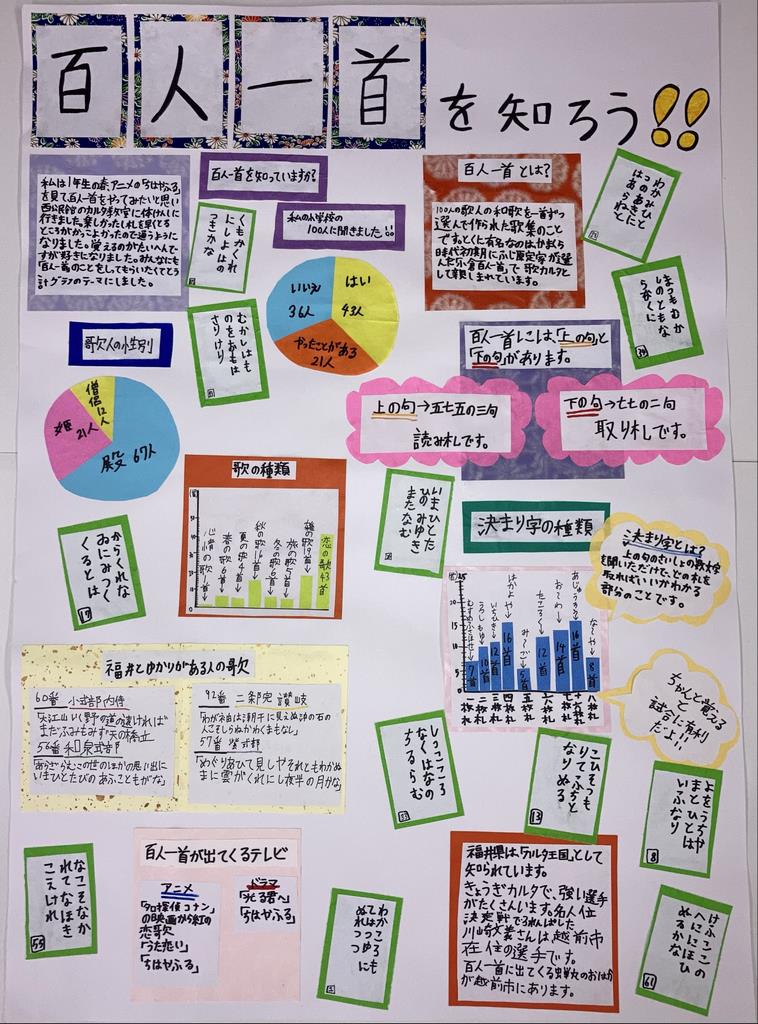 百人一首を知ろう!!
私は1年生の春、アニメの「ちはやふる」
を見て百人一首をやってみたいと思い
西公民館のカルタ教室に体けんに
行きました。楽しかったし札を早くとる
ところがかっこよかったので通うように
なりました。覚えるのがたいへんで
すが好きになりました。みんなにも
百人一首のことをしってもらいたくてとう
計グラフのテーマにしました。
百人一首を知っていますか?
私の小学校の
100人に聞きました!!
はい
43人
やったことがある
21人
いいえ
36人
くもがくれ
にしよはの
つきかな
むかしはも
のをおもは
さりけり
百人一首とは?
100人の歌人の和歌を一首ずつ
選んで作られた歌集のこと
です。とくに有名なのはかまくら
時代初期にふじ原定家が選
んだ「小倉百人一首」で歌カルタと
して親しまれています。
わかみひと
つのあきに
はあらねと
23
まつもむか
しのともな
らなくに
34
歌人の性別
殿 67人
姫
21人
僧侶
12人
百人一首には、「上の句」と
「下の句」があります。
上の句→五七五の三句
読み札です。
下の句→七七の二句
取り札です。
歌の種類
心情の歌1首
春の歌6首
夏の歌4首
秋の歌16首
冬の歌6首
旅の歌5首
雑の歌19首
恋の歌43首
いまひとた
ひのみゆき
またなむ
からくれな
ゐにみつく
くるとは
17
決まり字の種類
むすめふさほせ
7首
一枚札
うつしもゆ
10首
二枚札
いちひき
12首
三枚札
はやよか
16首
四枚札
み
5首
五枚札
12首
六枚札
おわ
14首
七枚札
あ
16首
十六枚札
な
8首
八枚札
決まり字とは?
上の句のさいしょの数文字
を聞いただけで、どの札を
取ればいいかわかる
部分のことです。
ちゃんと覚える
と
試合に有利
だよ!!
福井とゆかりがある人の歌
60番 小式部内侍
「大江山いく野の道の遠ければ
まだふみもみず天の橋立
56番 和泉式部
「あらざらむこの世のほかの思い出に
いまひとたびのあふこともがな」
92番 二条院讃岐
「わが袖は潮干に見えぬ沖の石の
人こそしらぬかわくまもなし」
57番 紫式部
「めぐりあひて見しやそれともわかぬ
まに雲がくれにし夜半の月かな」
しつこころ
なくはなの
ちるらむ
33
こひそつも
りてふちと
なりぬる
13
よをうちや
まとひとは
いふなり
8
なこそなか
れてなほき
こえけれ
55
百人一首が出てくるテレビ
アニメ
「名探偵コナン」
の映画から紅の
恋歌
「うた恋い」
「ちはやふる」
ドラマ
「光る君へ」
「ちはやふる」
わかころも
てはつゆに
ぬれつつ
福井県は、「カルタ王国」として
知られています。
きょうぎカルタで、強い選手
がたくさんいます。名人位
決定戦で3れんぱした
川崎文義さんは越前市
在住の選手です。
百人一首に出てくる蝉丸のおはか
が越前市にあります。
けふここの
へににほひ
ぬるかな
61